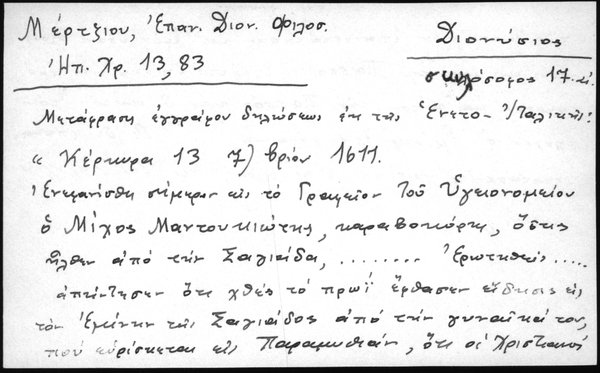 Μέρτζιου, Ἐπαν. Διον. Φιλοσ.
Ἠπ. Χρ. 13, 83
Διονύσιος
σκυλόσοφος 17. αἰ.
Μετάφρασις ἐγγράφου δηλώσεως ἐκ τῆς Ἑνετο-Ἰταλικῆς:
« Κέρκυρα 13 7)βρίου 1611.
Ἐνεφανίσθη σήμερον εἰς τὸ Γραφεῖον τοῦ Ὑγειονομείου
ὁ Μίχος Μαντουκιώτης, καραβοκύρης, ὅστις
ἦλθεν ἀπὸ τὴν Σαγιάδα, ........ Ἐρωτηθεὶς .....
ἀπήντησεν ὅτι χθὲς τὸ πρωῒ ἔφθασεν εἴδησις εἰς
τὸν Ἐμίνην τῆς Σαγιάδος ἀπὸ τὴν γυναῖκά του,
ποὺ εὑρίσκεται εἰς Παραμυθιάν, ὅτι οἱ Χριστιανοὶ